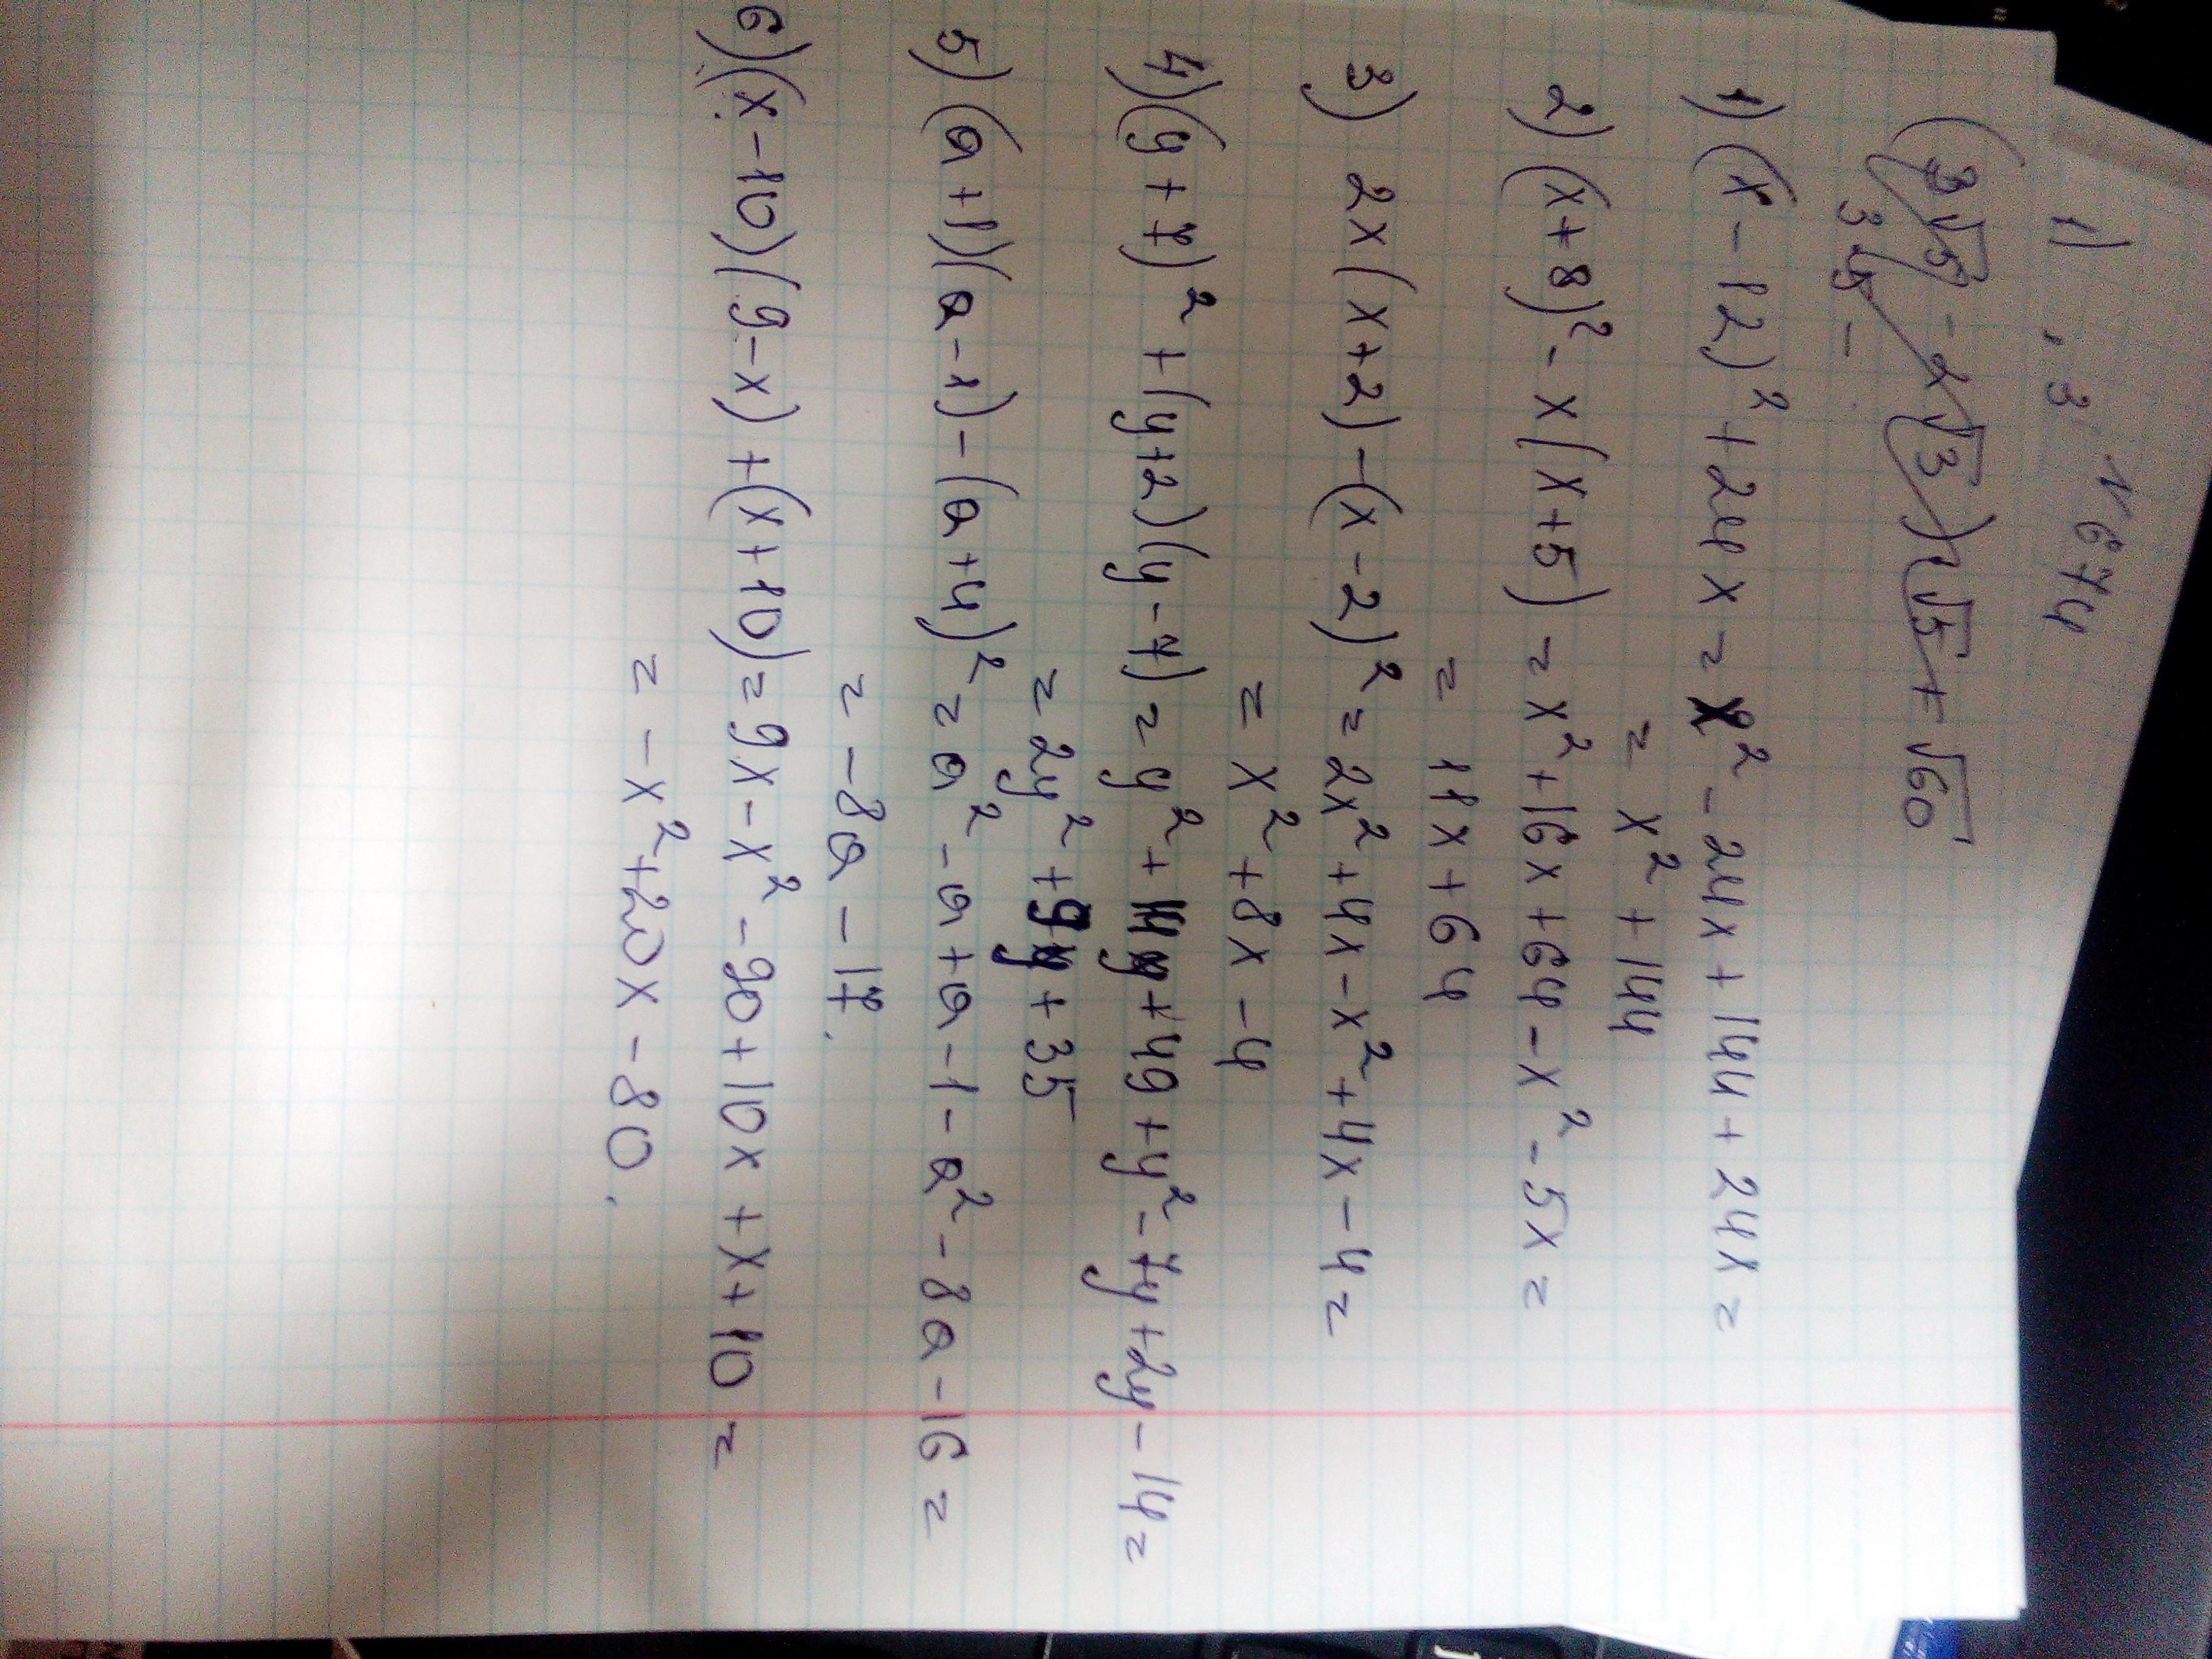 1) , 3 N 674
(3√5 - 2√3)√5 + √60
3√5 -
1) (x - 12)² + 24x = x² - 24x + 144 + 24x =
= x² + 144
2) (x + 8)² - x(x + 5) = x² + 16x + 64 - x² - 5x =
= 11x + 64
3) 2x(x + 2) - (x - 2)² = 2x² + 4x - x² + 4x - 4 =
= x² + 8x - 4
4) (y + 7)² + (y + 2)(y - 7) = y² + 14y + 49 + y² - 7y + 2y - 14 =
= 2y² + 9y + 35
5) (a + 1)(a - 1) - (a + 4)² = a² - a + a - 1 - a² - 8a - 16 =
= -8a - 17.
6) (x - 10)(9 - x) + (x + 10) = 9x - x² - 90 + 10x + x + 10 =
= -x² + 20x - 80.